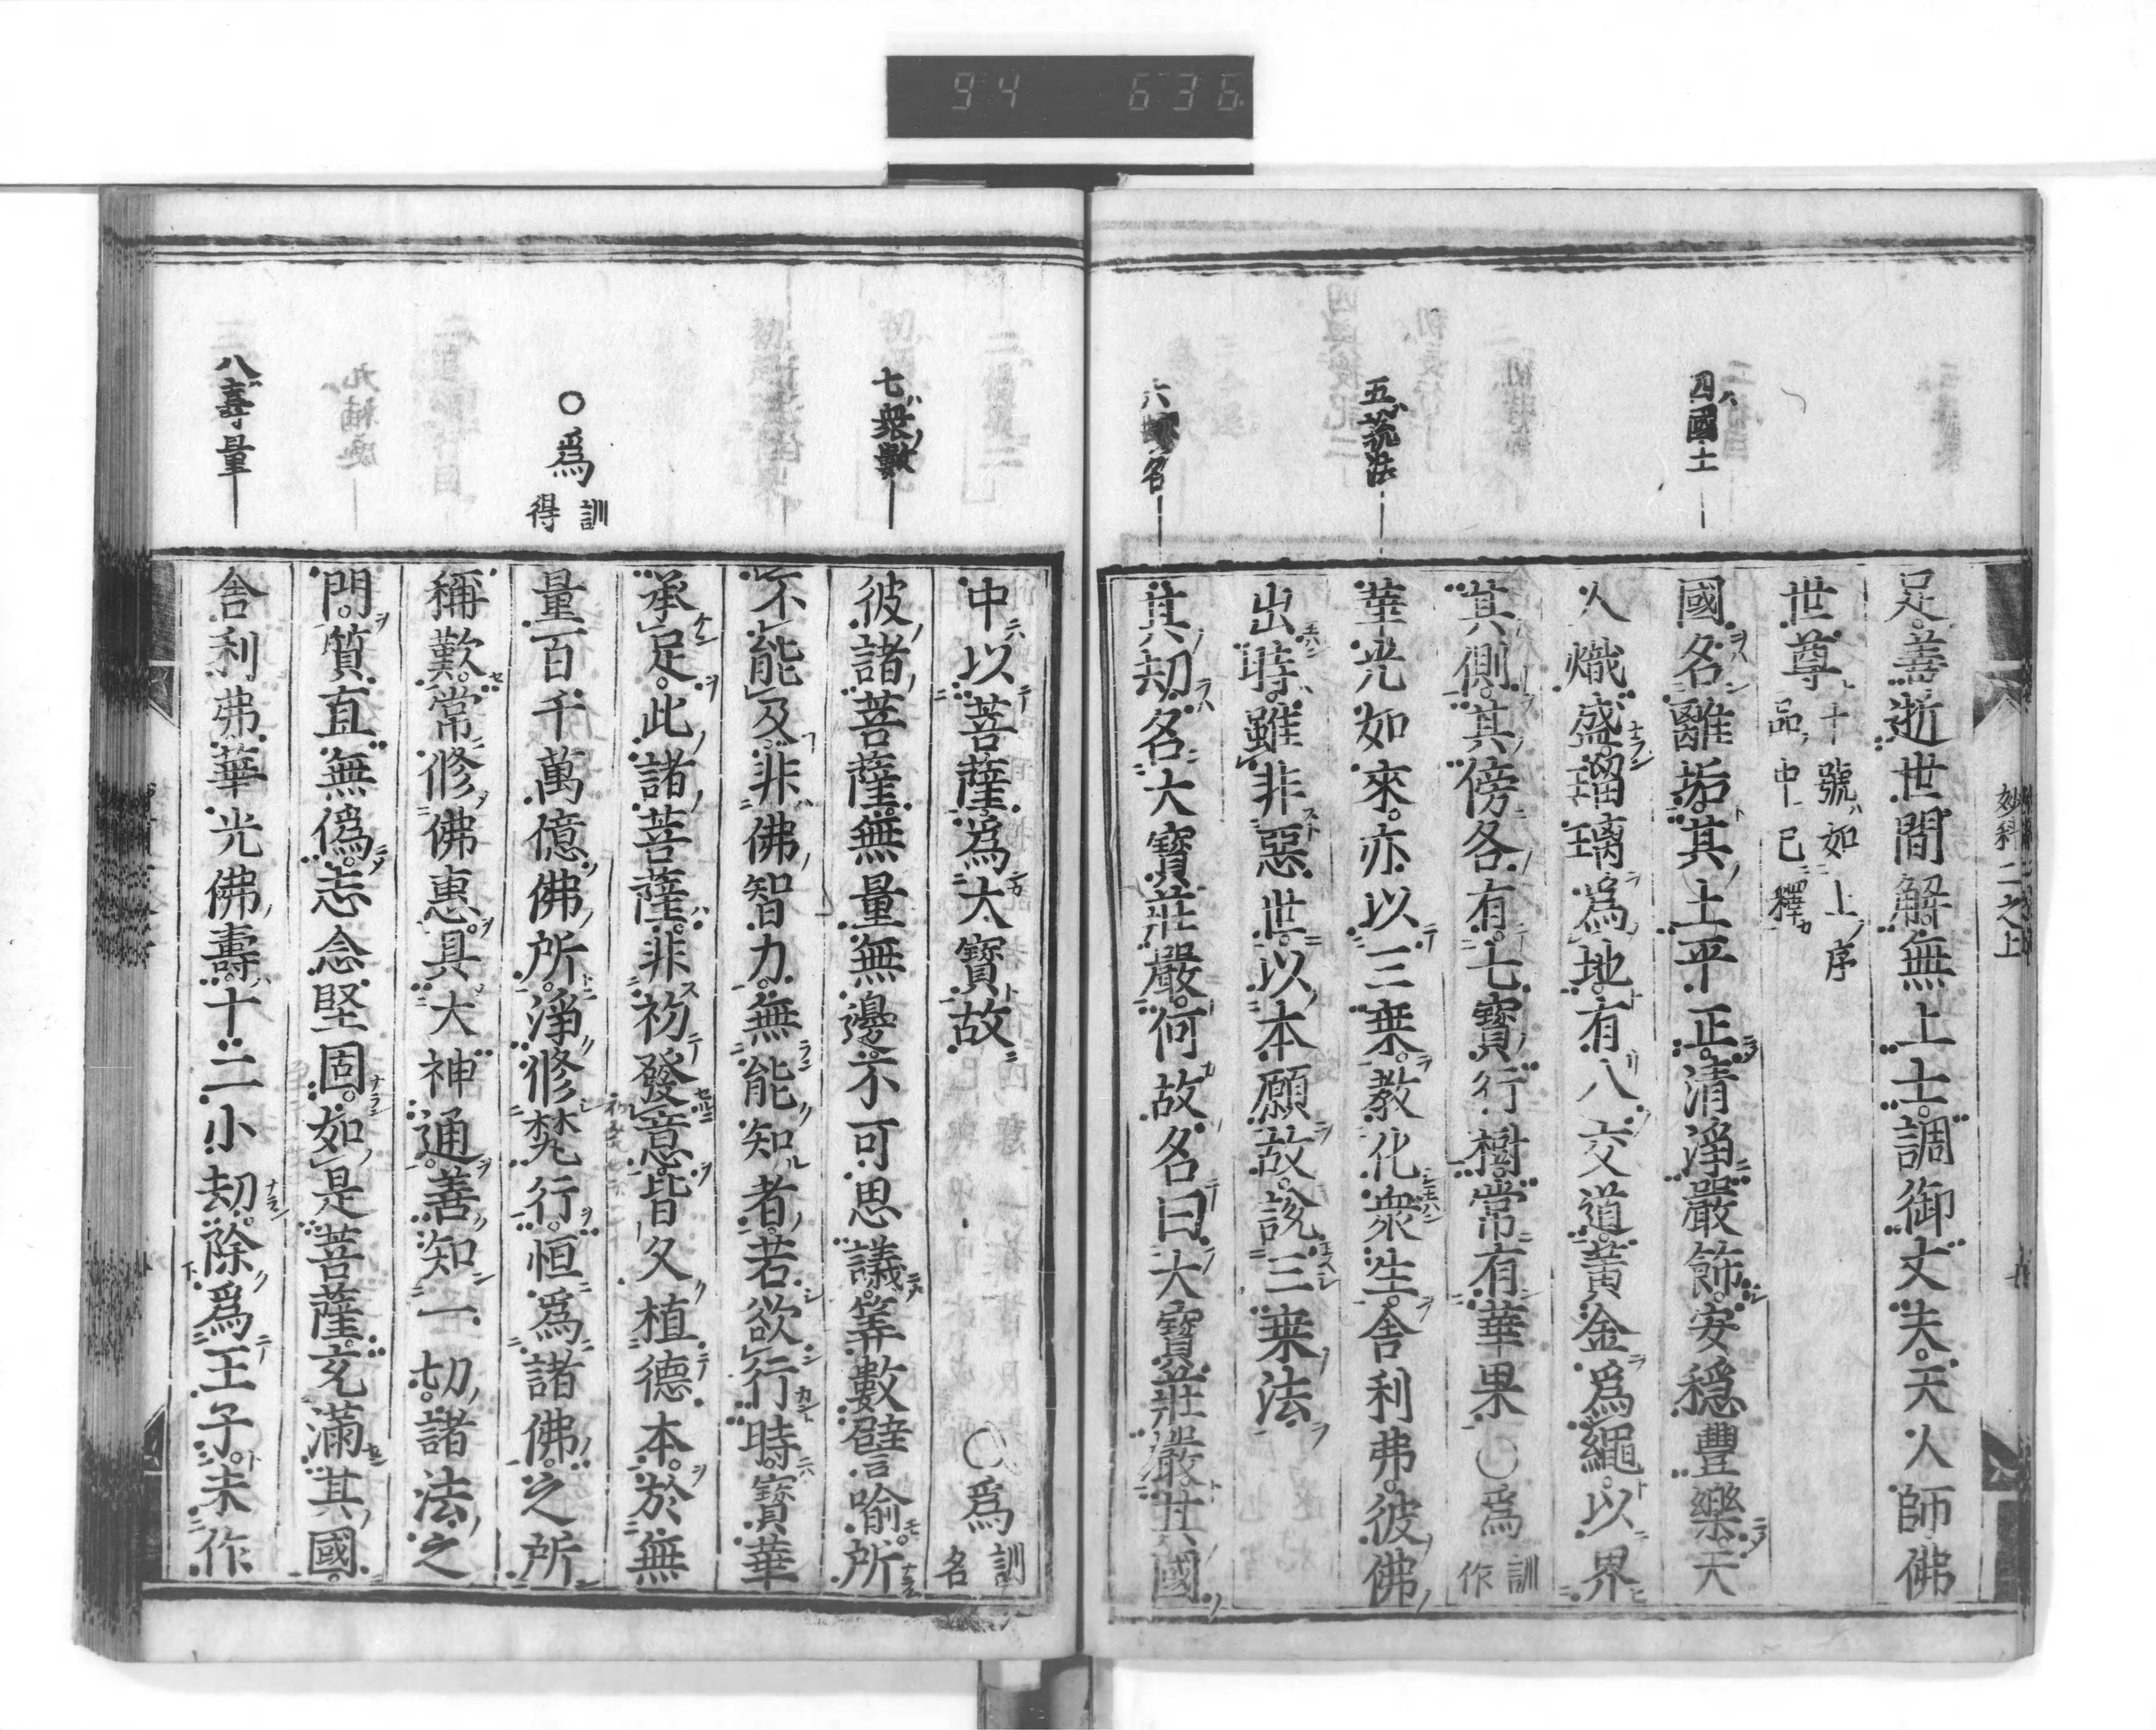 94 636
妙科二之上
足善逝世間解無上士調御丈夫天人師佛
世尊
十號如上序
品中已釋
四國土
國名離垢其土平正清淨嚴飾安穩豐樂天
人熾盛瑠璃爲地有八交道黃金爲繩以界
其側其傍各有七寶行樹常有華果○爲訓作
五說法
華光如來亦以三乗教化衆生舍利弗彼佛
出時雖非惡世以本願故說三乗法
六劫名
其劫名大寶莊嚴何故名曰大寶莊嚴其國
中以菩薩爲大寶故○爲訓名
七衆數
彼諸菩薩無量無邊不可思議筭數譬喻所
不能及非佛智力無能知者若欲行時寶華
承足此諸菩薩非初發意皆久植德本於無
○爲訓得
量百千萬億佛所淨修梵行恒爲諸佛之所
稱歎常修佛惠具大神通善知一切諸法之
門質直無僞志念堅固如是菩薩充滿其國
八壽量
舍利弗華光佛壽十二小劫除爲王子未作